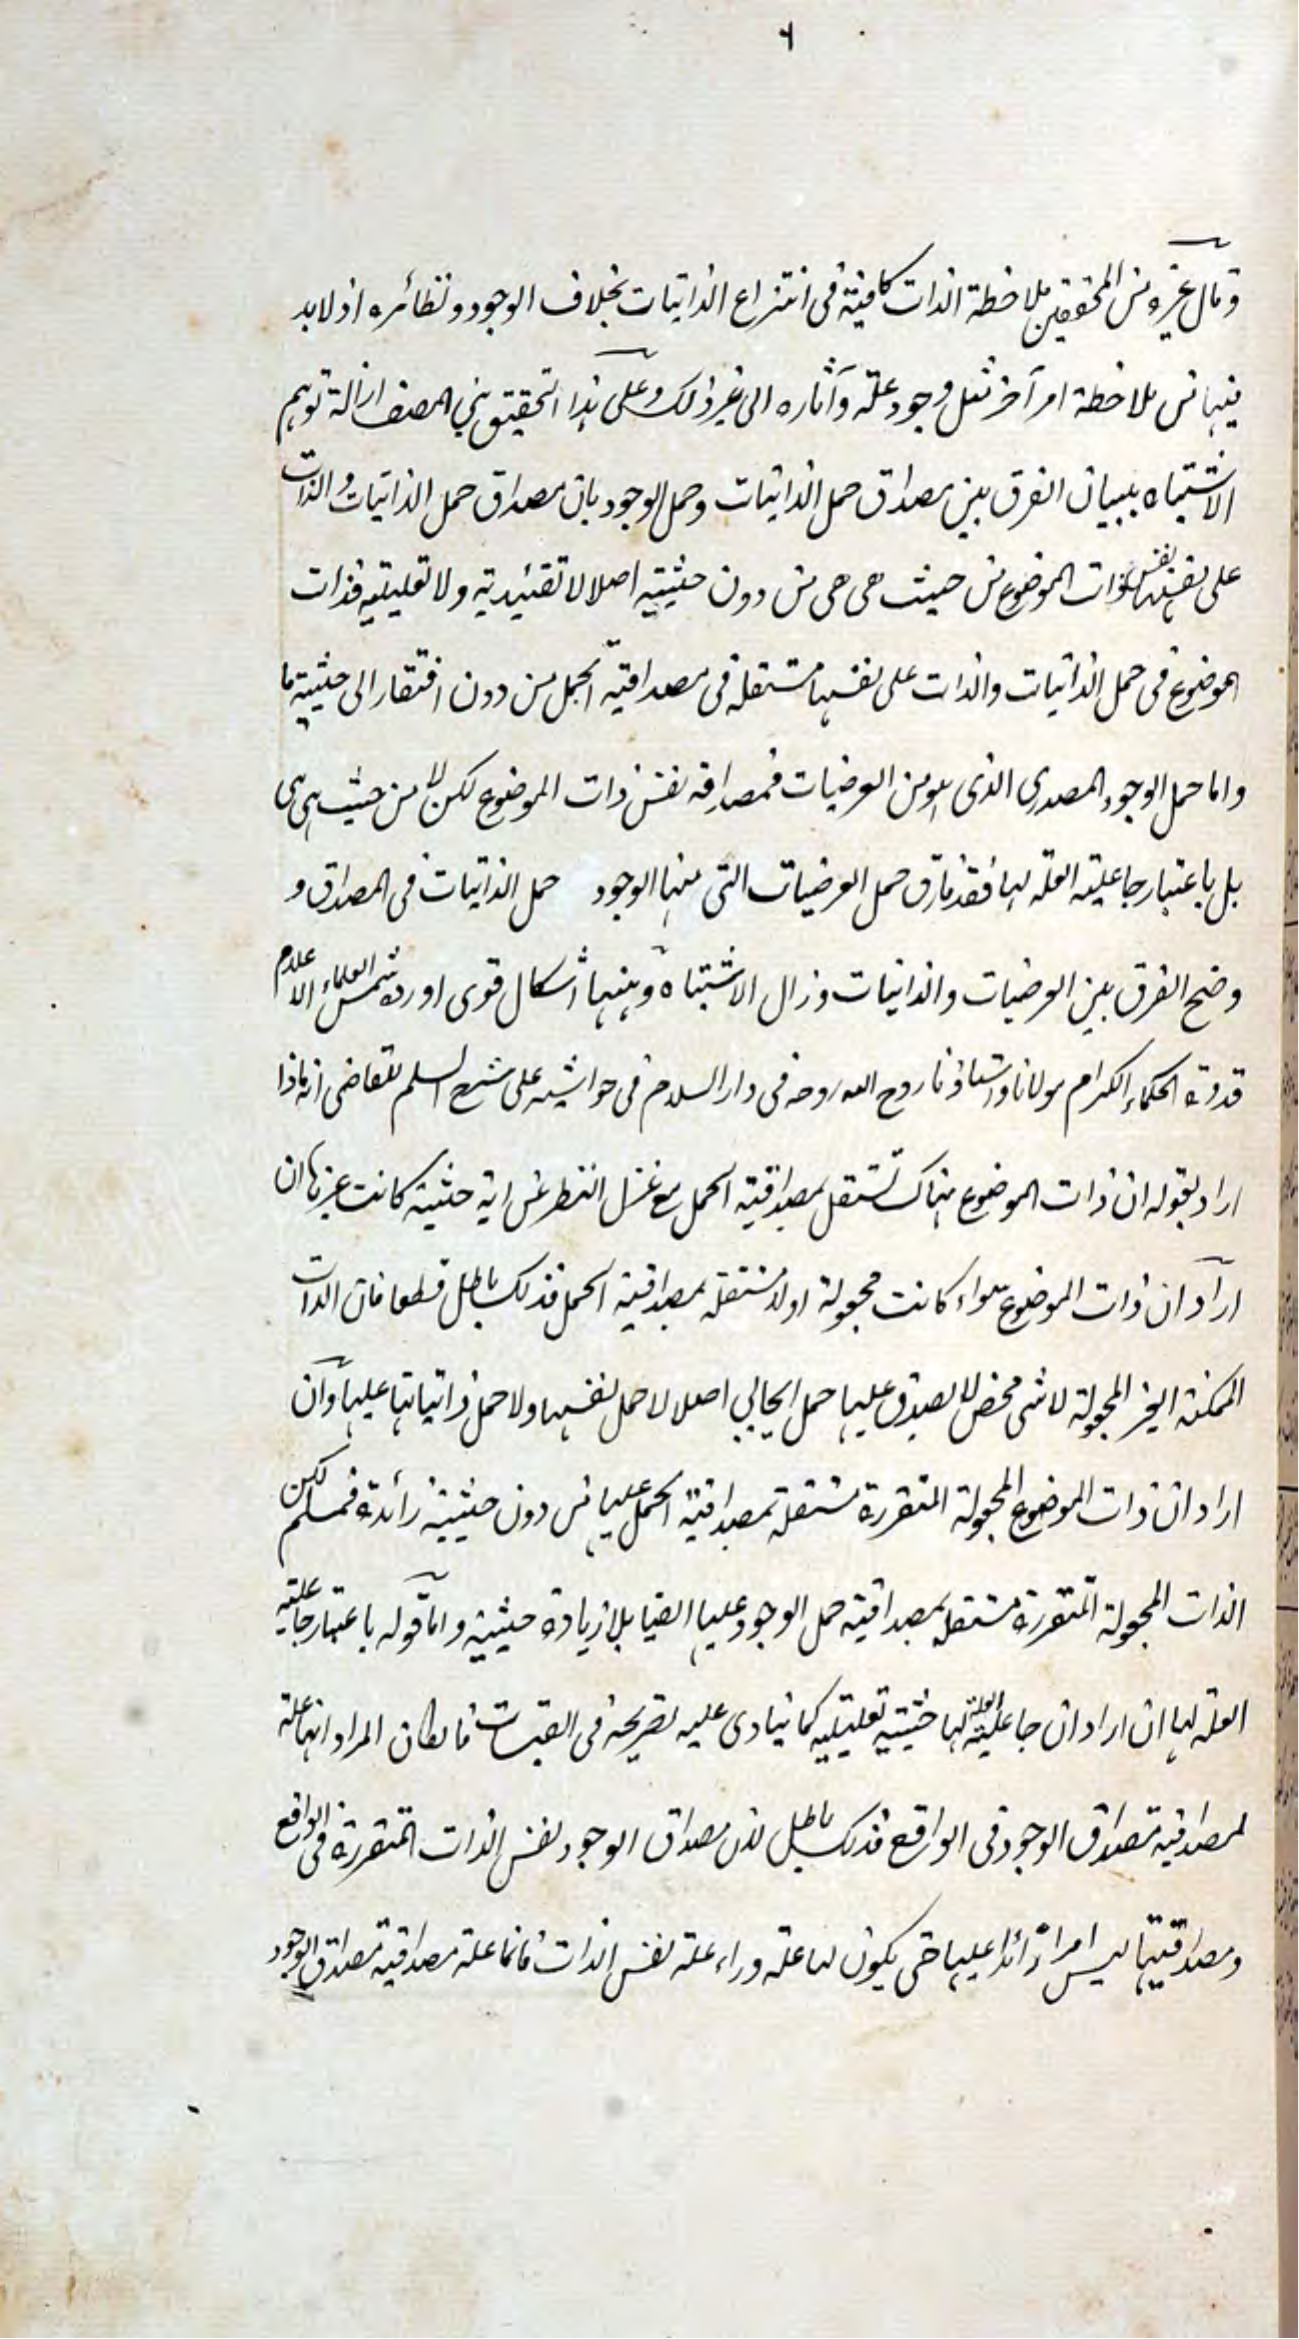 ٦
وقال غيره من المحققين ملاحظة الذات كافية في انتزاع الذاتيات بخلاف الوجود ونظائره اذ لا بد
فيها من ملاحظة امر آخر مثل وجود علته وآثاره الى غير ذلك وعلى هذا التحقيق بني المصنف ازالة توهم
الاشتباه ببيان الفرق بين مصداق حمل الذاتيات وحمل الوجود بان مصداق حمل الذاتيات والذات
على نفسها نفس ذات الموضوع من حيث هي هي من دون حيثية اصلا لا تقئيدية ولا تعليلية فذات
الموضوع في حمل الذاتيات والذات على نفسها مستقلة في مصداقية الحمل من دون افتقار الى حيثية ما
واما حمل الوجود المصدري الذي هو من العرضيات فمصداقه نفس ذات الموضوع لكن لا من حيث هي هي
بل باعتبار جاعلية العلة لها فقد فارق حمل العرضيات التي منها الوجود حمل الذاتيات في المصداق و
وضح الفرق بين العرضيات والذاتيات وزال الاشتباه وههنا اشكال قوي اورده شمس العلماء الاعلام
قدوة الحكماء الكرام مولانا واستاذنا روح الله روحه في دار السلام في حواشيه على شرح السلم للقاضي انه ماذا
اراد بقوله ان ذات الموضوع هناك تستقل بمصداقية الحمل مع عزل النظر عن اية حيثية كانت غيرها ان
اراد ان ذات الموضوع سواء كانت مجعولة او لا مستقلة بمصداقية الحمل فذلك باطل قطعا فان الذات
الممكنة الغير المجعولة لا شي محض لا يصدق عليها حمل ايجابي اصلا لا حمل نفسها ولا حمل ذاتياتها عليها وان
اراد ان ذات الموضوع المجعولة المتقررة مستقلة بمصداقية الحمل عليها من دون حيثية زائدة فمسلم لكن
الذات المجعولة المتقررة مستقلة بمصداقية حمل الوجود عليها ايضا بلا زيادة حيثية واما قوله باعتبار جاعلية
العلة لها ان اراد ان جاعلية العلة لها حيثية تعليلية كما ينادي عليه تصريحه في القبسات فان كان المراد انها علة
لمصداقية مصداق الوجود في الواقع فذلك باطل لان مصداق الوجود نفس الذات المتقررة في الواقع
ومصداقيتها ليس امرا زائدا عليها حتى يكون لها علة وراء علة نفس الذات فانما علة مصداقية مصداق الوجود